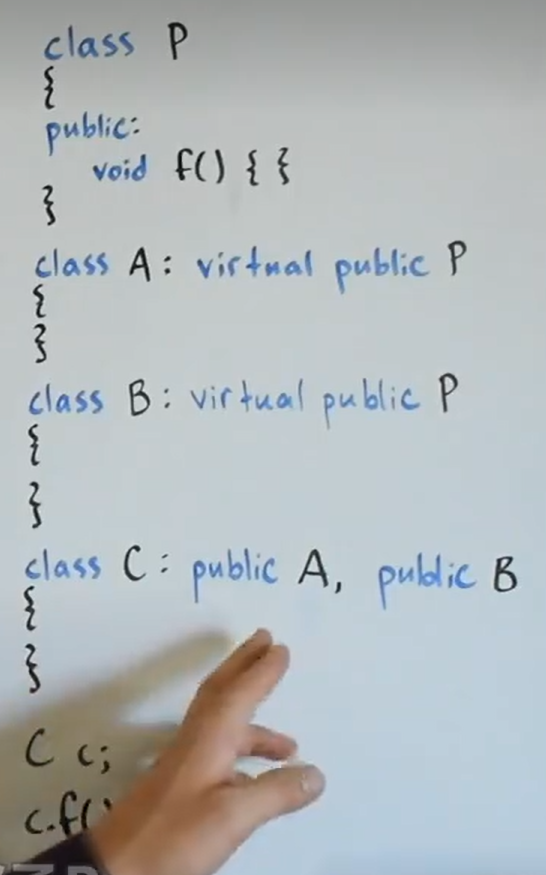 class P
{
public:
void f() { }
}
class A: virtual public P
{
}
class B: virtual public P
{
}
class C: public A, public B
{
}
C c;
c.f()